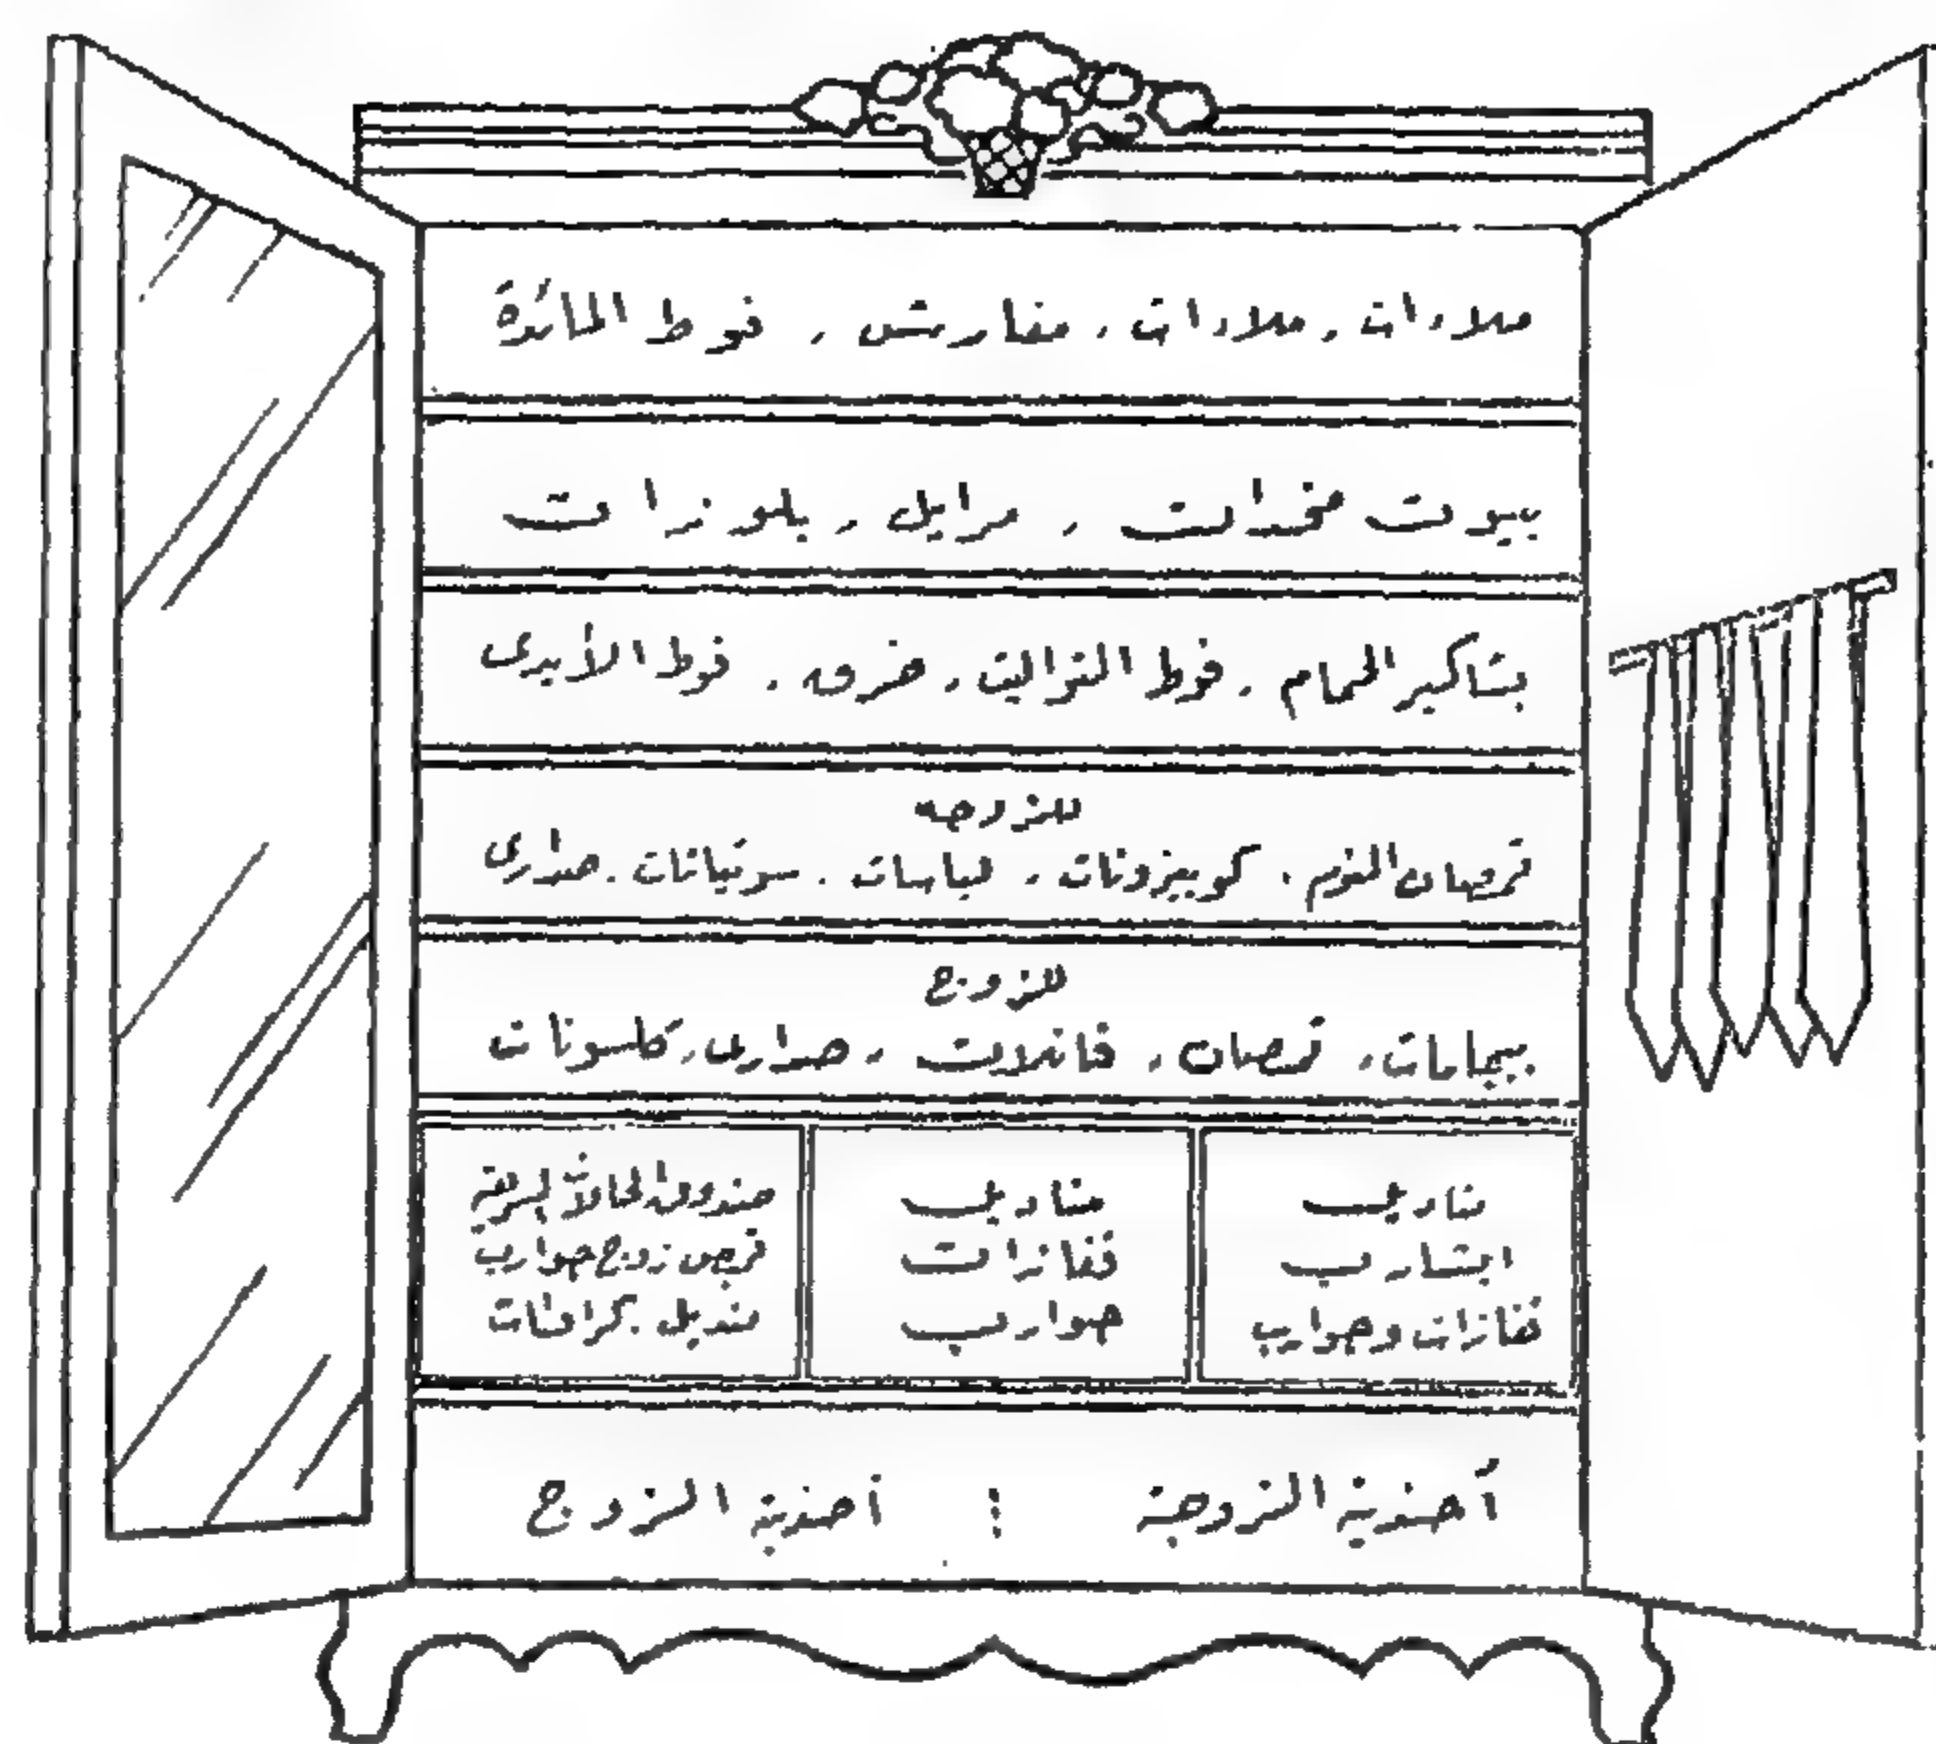 ملاءات، ملاءات، مفارش، فوط المائدة
بيوت مخدات، مرايل، بلوزات
بشاكير الحمام، فوط التواليت، خرق، فوط الأيدى
للزوجه
قمصان النوم، كومبيزونات، لباسات، سوتيانات، صدارى
للزوج
بيجامات، قمصان، فانلات، صدارى، كلسونات
مناديل
ايشارب
قفازات وجوارب
مناديل
قفازات
جوارب
صندوق الحالات السريعة
قميص زوج جوارب
منديل، كرافتات
أحذية الزوجة
أحذية الزوج